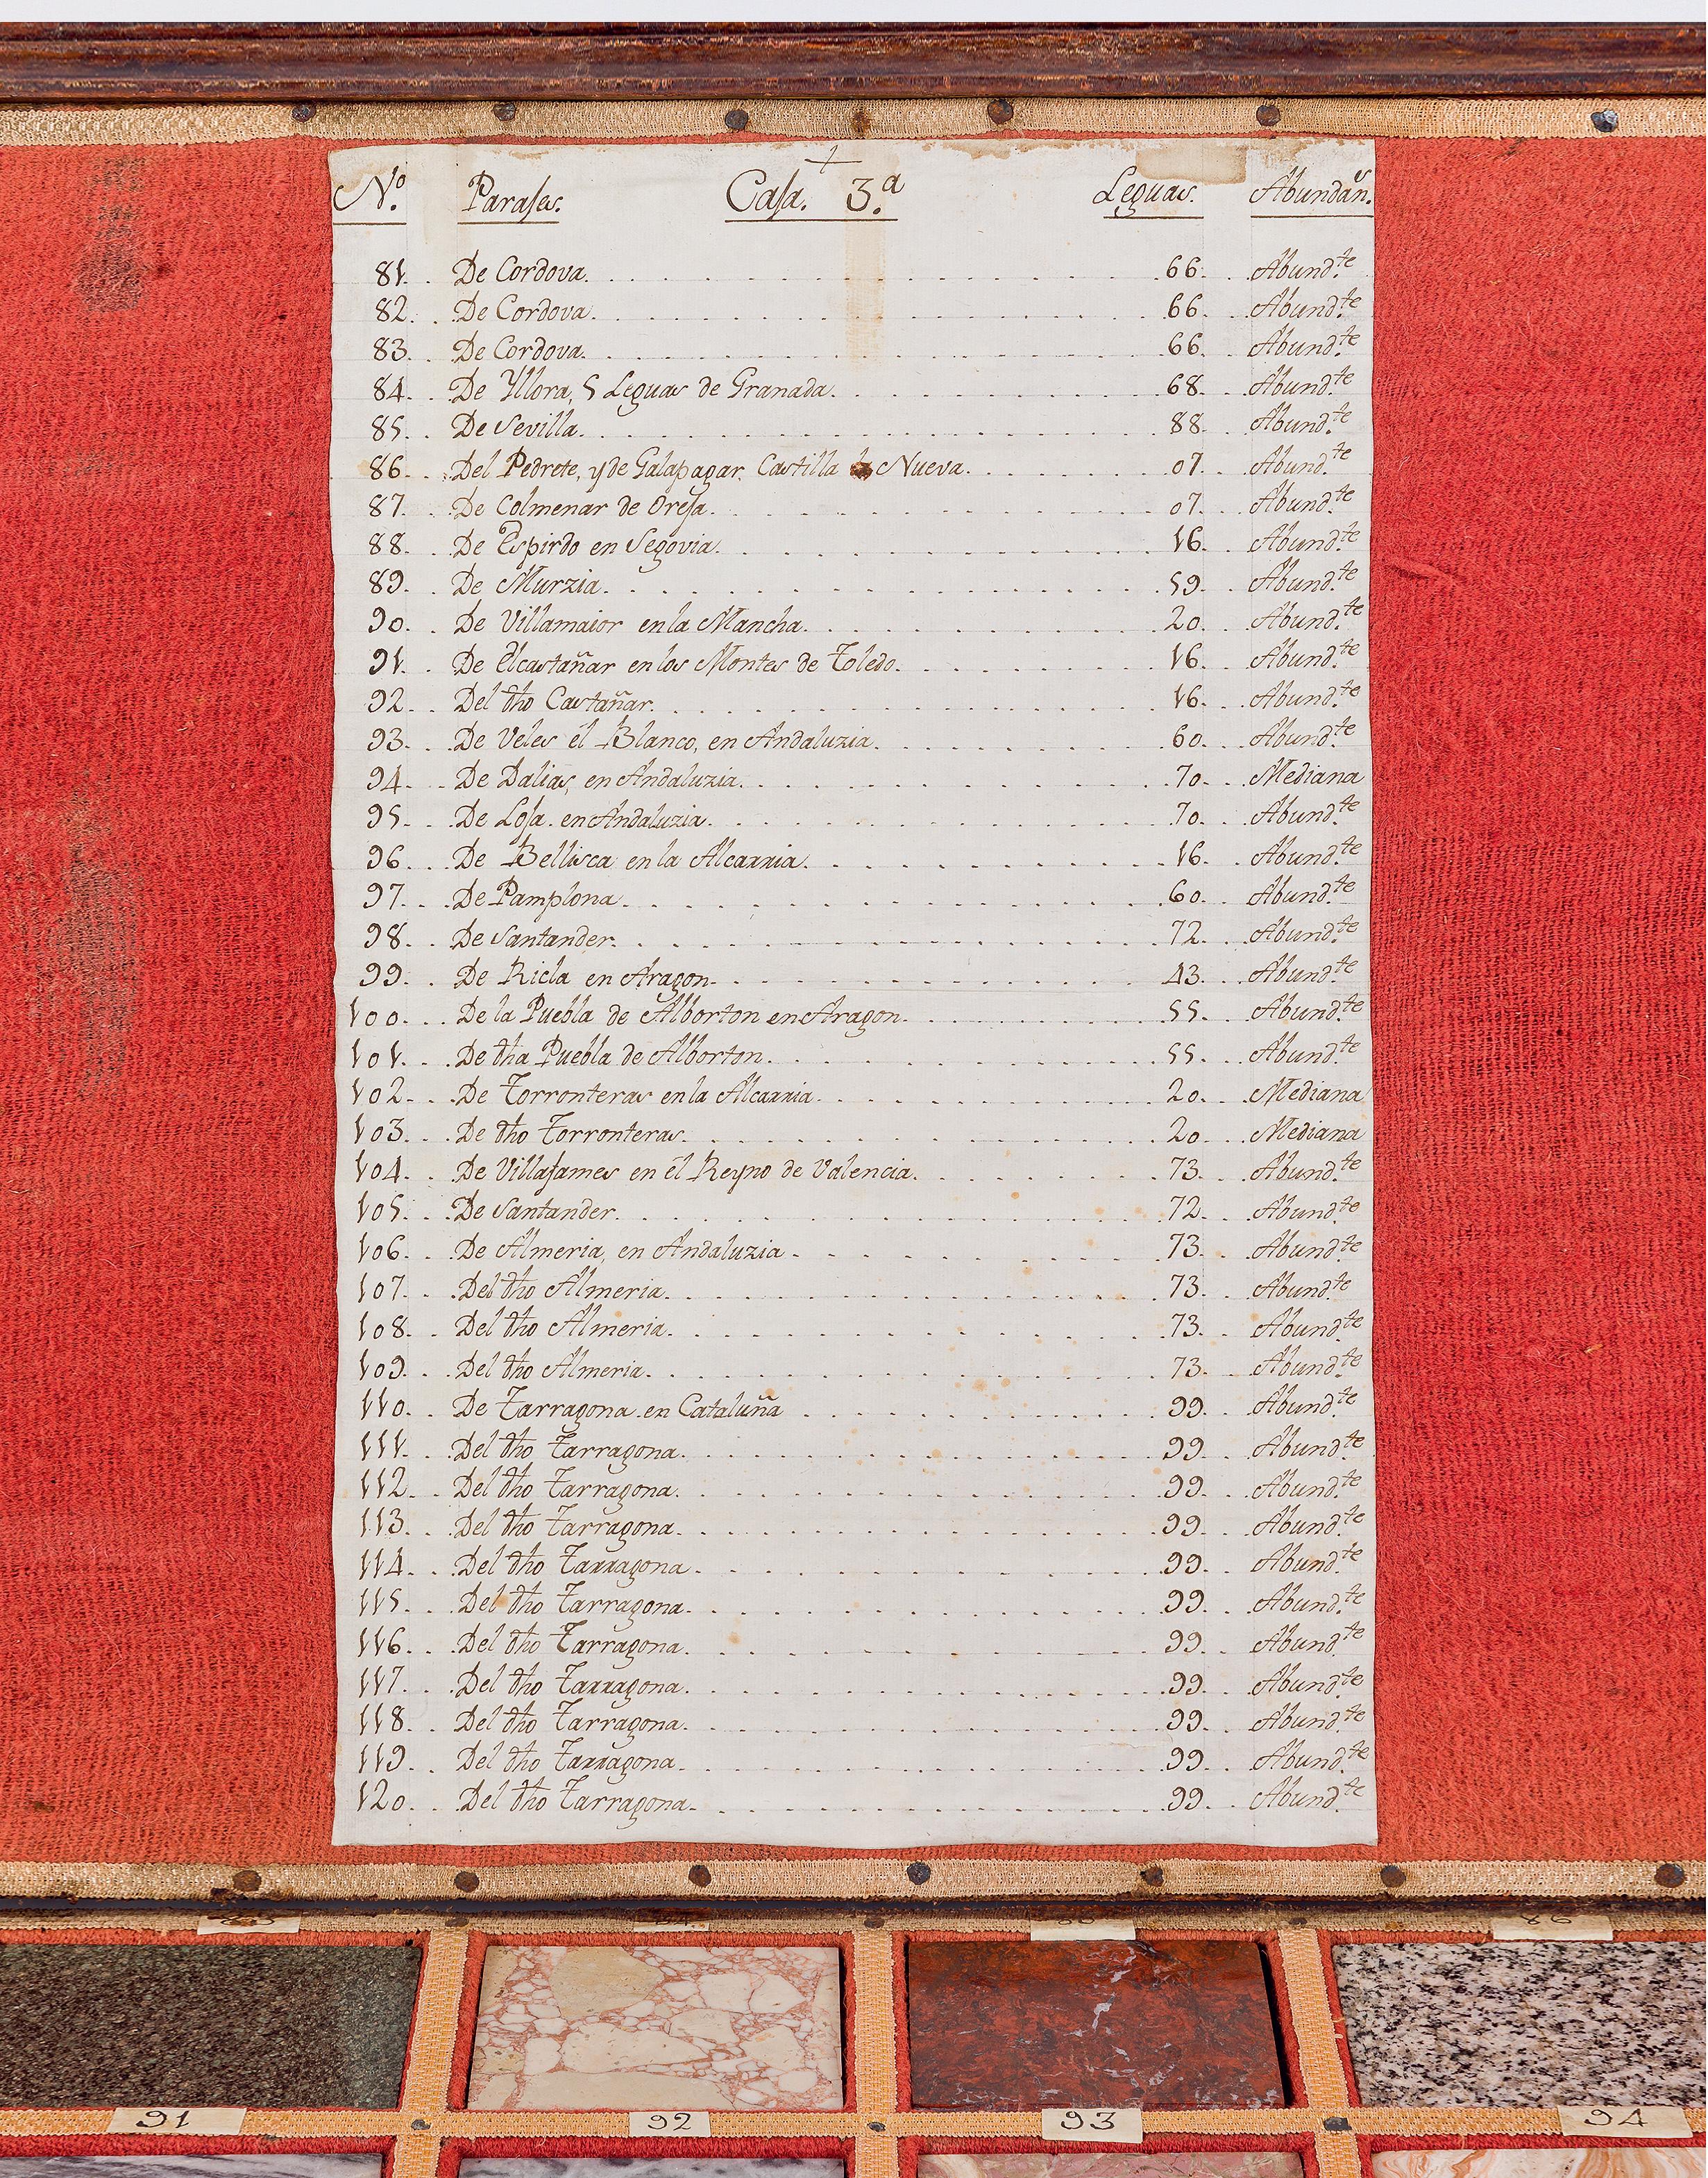 N.º Parajes. Caja. 3.ª Leguas. Abundan.ˢ
81. De Cordova. 66. Abund.te
82. De Cordova. 66. Abund.te
83. De Cordova. 66. Abund.te
84. De Yllora, 5 Leguas de Granada. 68. Abund.te
85. De Sevilla. 88. Abund.te
86. Del Pedrete, y de Galapagar. Castilla la Nueva. 07. Abund.te
87. De Colmenar de Oreja. 07. Abund.te
88. De Espirdo en Segovia. 16. Abund.te
89. De Murzia. 59. Abund.te
90. De Villamaior en la Mancha. 20. Abund.te
91. De Elcastañar en los Montes de Toledo. 16. Abund.te
92. Del dho Castañar. 16. Abund.te
93. De Veles él Blanco, en Andaluzia. 60. Abund.te
94. De Dalias, en Andaluzia. 70. Mediana
95. De Loja en Andaluzia. 70. Abund.te
96. De Bellisca en la Alcarria. 16. Abund.te
97. De Pamplona. 60. Abund.te
98. De Santander. 72. Abund.te
99. De Ricla en Aragon. 43. Abund.te
100. De la Puebla de Alborton en Aragon. 55. Abund.te
101. De dha Puebla de Alborton. 55. Abund.te
102. De Torronteras en la Alcarria. 20. Mediana
103. De dho Torronteras. 20. Mediana
104. De Villafames en él Reyno de Valencia. 73. Abund.te
105. De Santander. 72. Abund.te
106. De Almeria, en Andaluzia. 73. Abund.te
107. Del dho Almeria. 73. Abund.te
108. Del dho Almeria. 73. Abund.te
109. Del dho Almeria. 73. Abund.te
110. De Tarragona en Cataluña 99. Abund.te
111. Del dho Tarragona. 99. Abund.te
112. Del dho Tarragona. 99. Abund.te
113. Del dho Tarragona. 99. Abund.te
114. Del dho Tarragona. 99. Abund.te
115. Del dho Tarragona. 99. Abund.te
116. Del dho Tarragona. 99. Abund.te
117. Del dho Tarragona. 99. Abund.te
118. Del dho Tarragona. 99. Abund.te
119. Del dho Tarragona. 99. Abund.te
120. Del dho Tarragona. 99. Abund.te
86
91 92 93 94